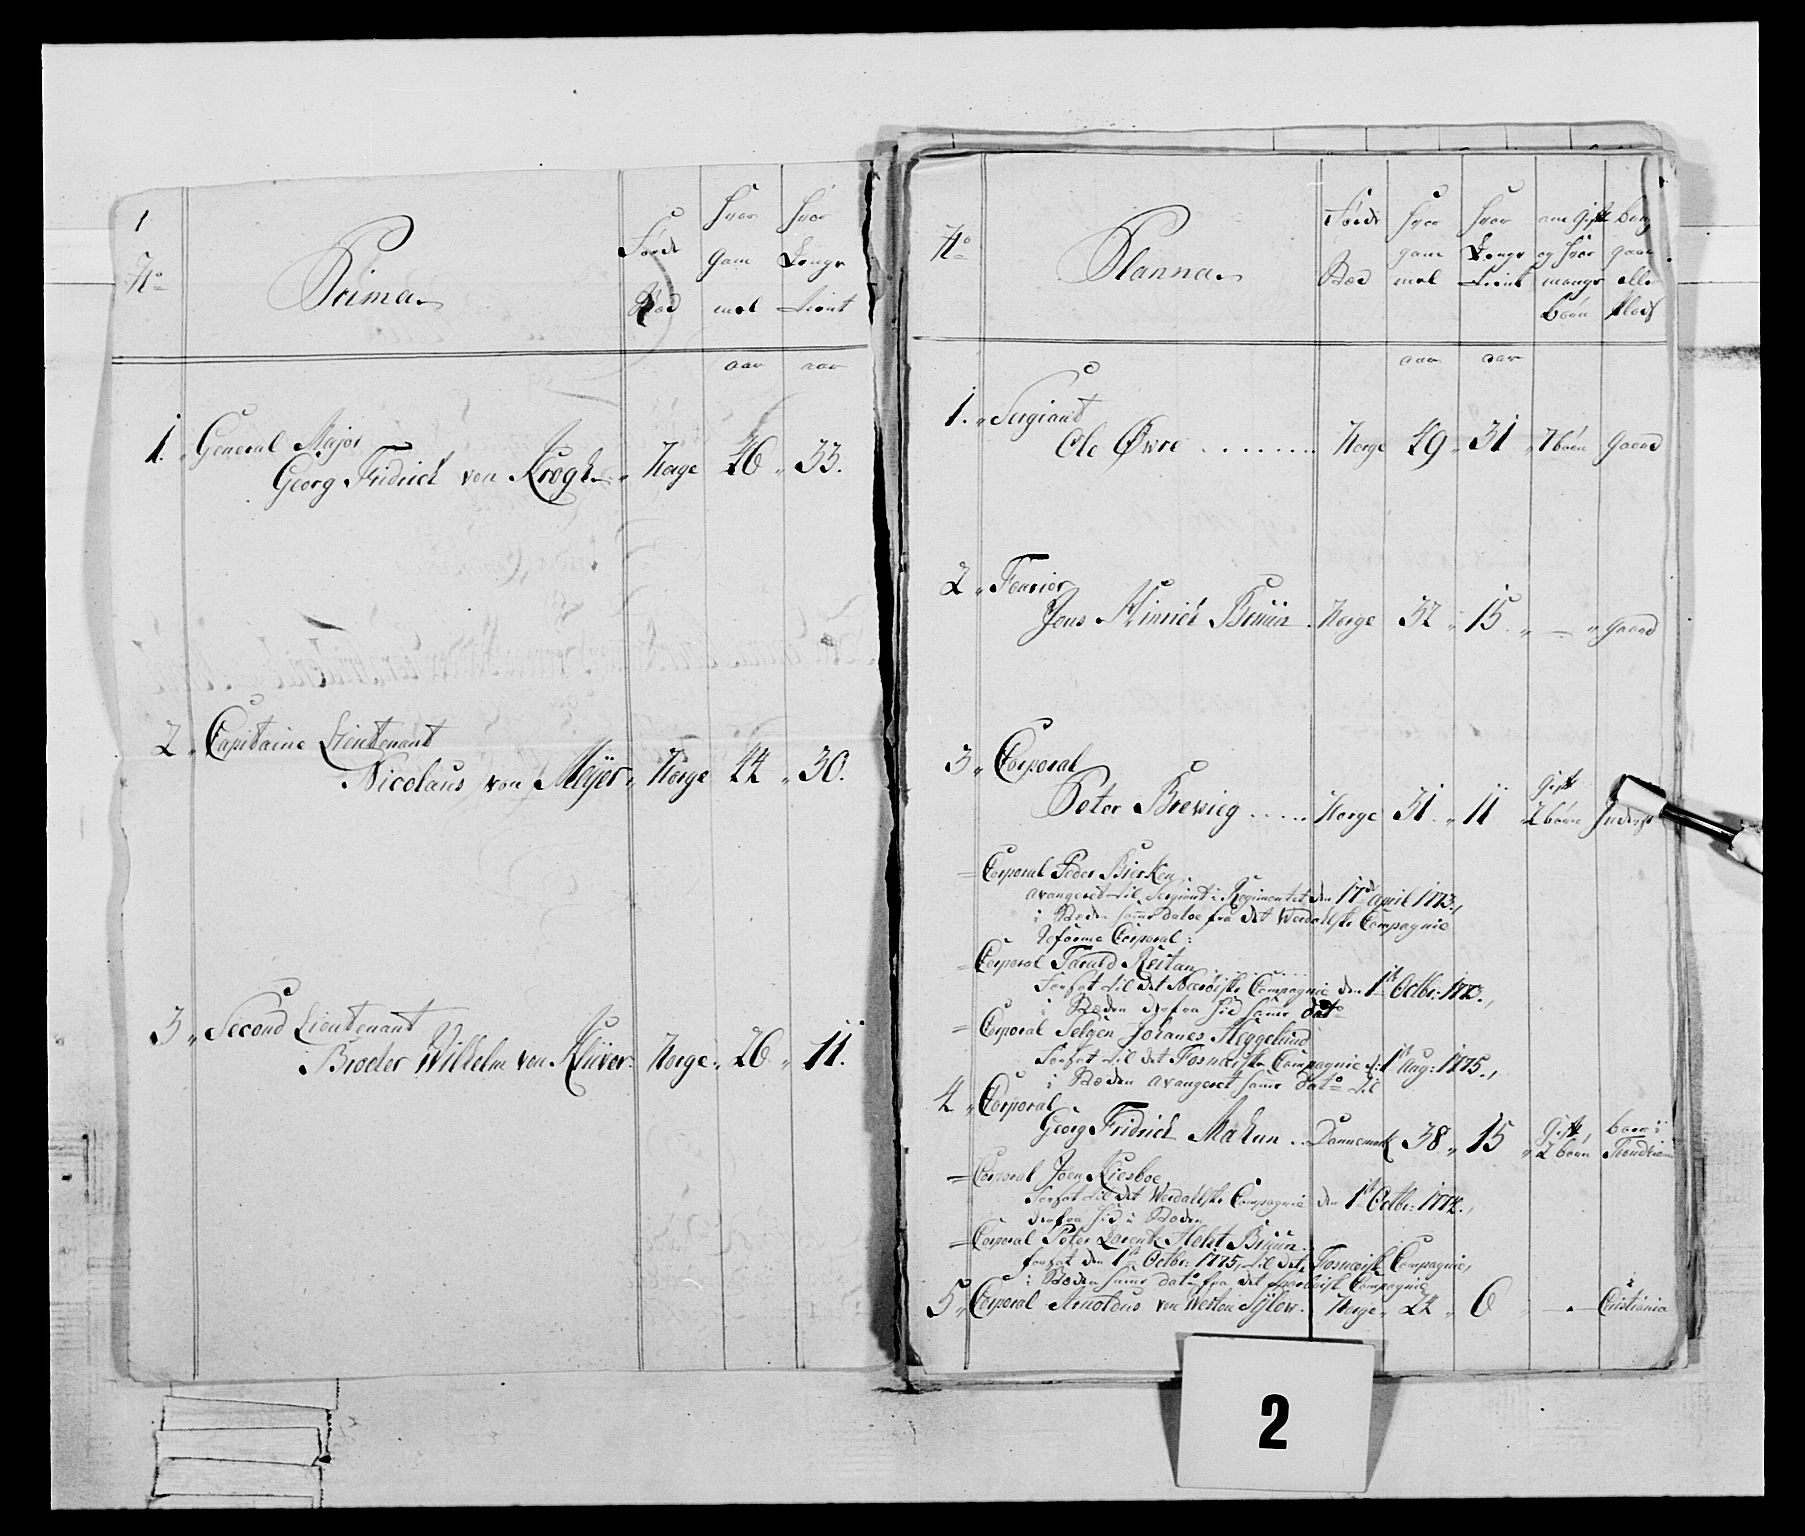 1
No
Prima
Födt
Hvor
Hvor
gam
Lenge
mel
tient
aar
aar
1. General Major
Georg Fridrich von Krogh Norge 46 33.
2 Capitaine Lieutenant
Nicolaus von Meÿer Norge 44 30.
3 Second Lieutenant
Broder Wilhelm von Klüver. Norge 26 11.
No
Planna
Födt
Hvor
Hvor
om Gift
gam
Lenge
og hvor
mel
tient
mange
eller
börn
Plads
aar
aar
1. Sergiant
Ole Øvre Norge 49 31 7 börn Gaard
2 Fourier
Jens Hinrich Bruun Norge 32 15 — Gaard
3 Corporal
Peter Brewieg Norge 31 11 Gift
2 börn
= Corporal Peder Bierken
avangeret til Sergiant i Regimentet den 17de April 1773.,
i Steden samme Datoe fra det Werdalske Compagnie
Reforme Corporal:
= Corporal Tarald Reitan
forsat til det Compagnie den 1ste Octbr: 1773.,
i Steden derfra hid samme dato
= Corporal Selgen Johanes Heggelund
forsat til det Fosnæiske Compagnie d: 1te Aug: 1775.,
i Steden avangeret samme Dato til
4 Corporal
Georg Fridrich Makun Dannemark 38 15 Gift,
2 börn
boer i
Trondhiem
= Corporal Joen Riesboe
forsat til det Werdalske Compagnie den 1ste Octbr: 1774.,
derfra hid i Steden
= Corporal Peter Lorentz Holst Bruun
forsat den 1ste Octbr: 1775, til det Fosnæiske Compagnie,
i Steden samme dato fra det Compagnie
5 Corporal Arnoldus von Westen Sÿlow. Norge 24 6 — i
Cristiania
2